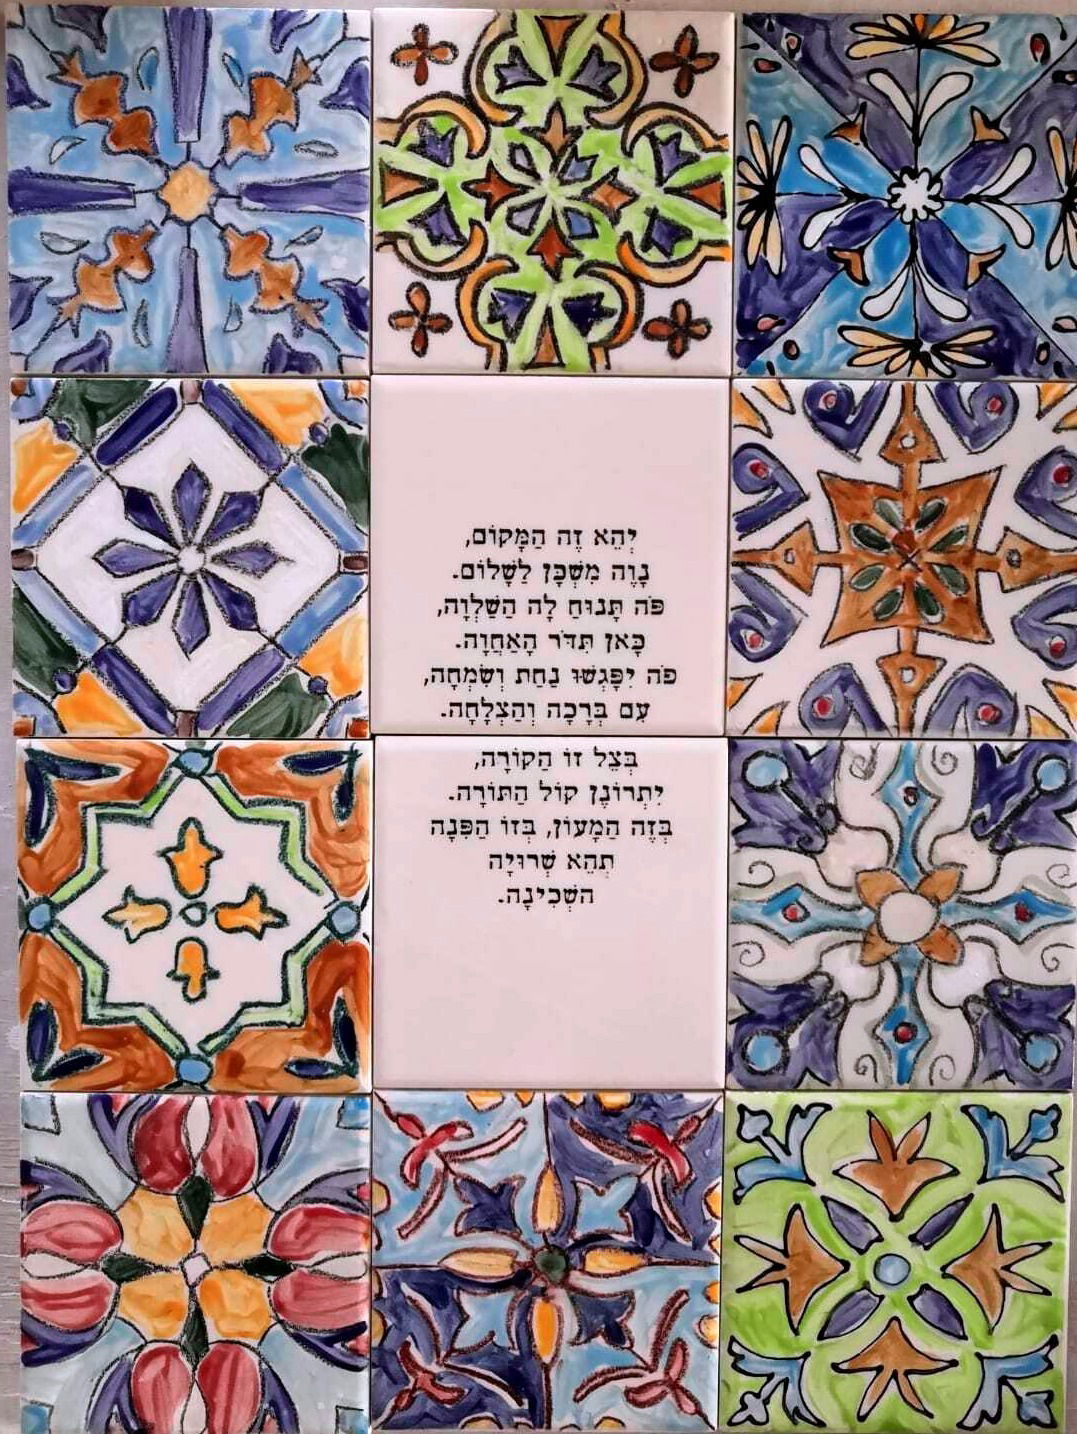 יְהֵא זֶה הַמָּקוֹם,
נָוֶה מִשְׁכָּן לַשָּׁלוֹם.
פֹּה תָּנוּחַ לָהּ הַשַּׁלְוָה,
כָּאן תִּדֹּר הָאַחֲוָה.
פֹּה יִפָּגְשׁוּ נַחַת וְשִׂמְחָה,
עִם בְּרָכָה וְהַצְלָחָה.
בְּצֵל זוֹ הַקּוֹרָה,
יִתְרוֹנֵן קוֹל הַתּוֹרָה.
בְּזֶה הַמָּעוֹן, בְּזוֹ הַפִּנָּה
תְּהֵא שְׁרוּיָה
הַשְּׁכִינָה.